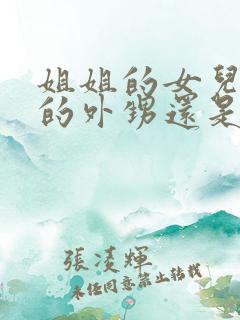 姐姐的女兒
的外甥還是
張淩輝
未經同意禁止轉載